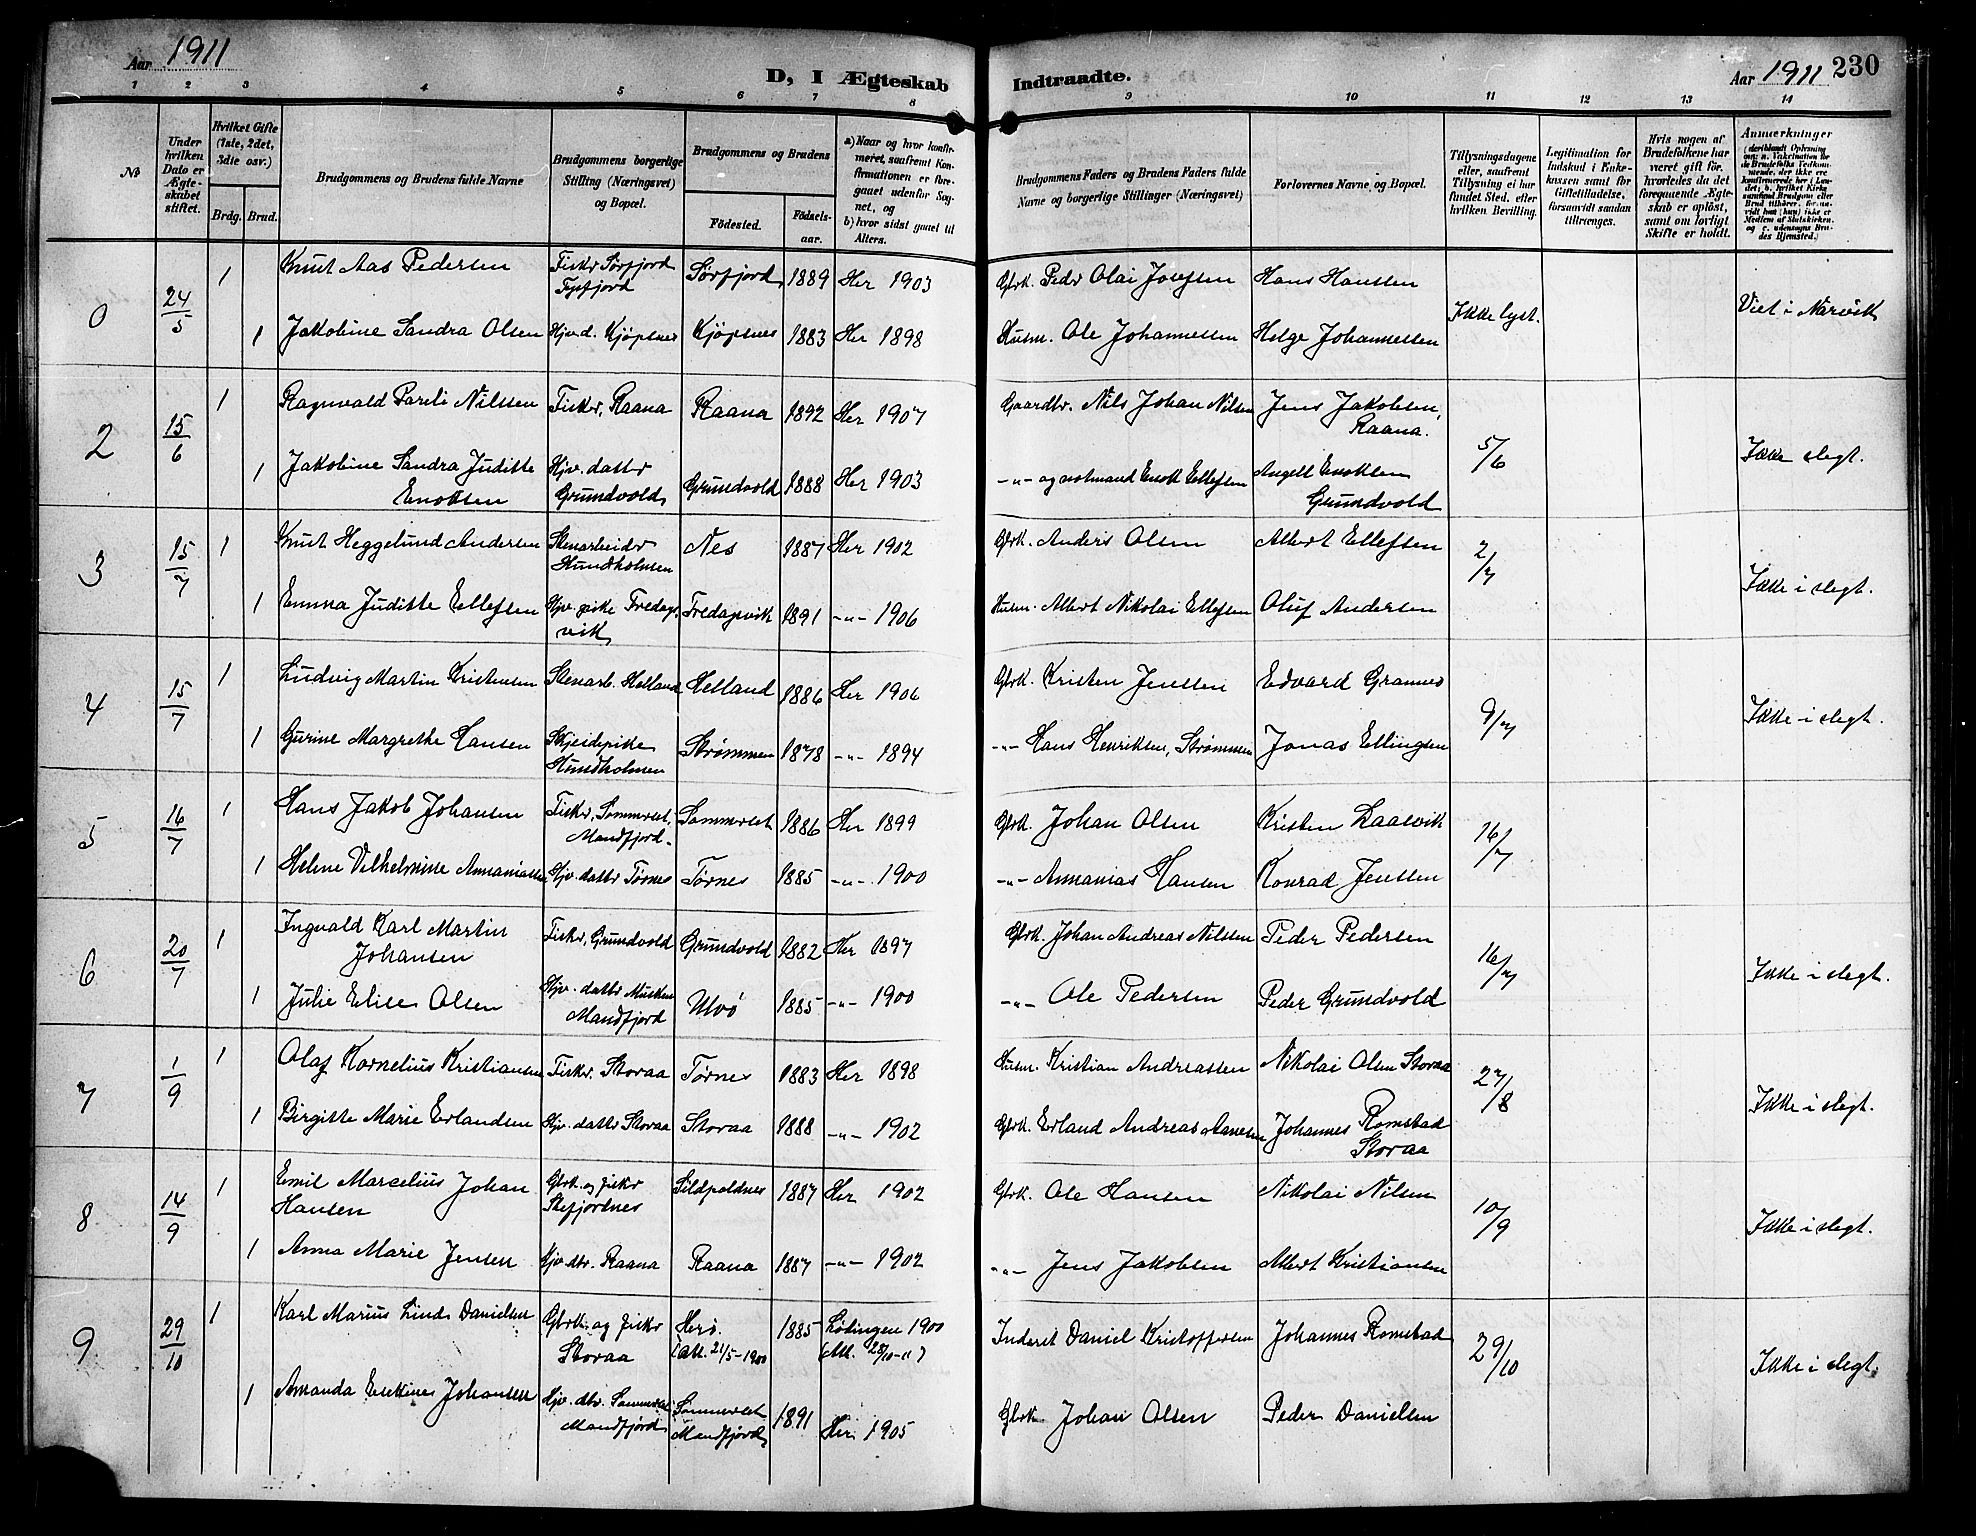 Aar 1911
D, I Ægteskab Indtraadte.
Aar 1911 230
1 2 3 4 5 6 7 8 9 10 11 12 13 14
No
Under hvilken Dato er Ægteskabet stiftet.
Hvilket Gifte (1ste, 2det, 3die osv.)
Brdg. Brud.
Brudgommens og Brudens fulde Navne
Brudgommens borgerlige Stilling (Næringsvei) og Bopæl.
Brudgommens og Brudens
Fødested. Fødselsaar.
a) Naar og hvor konfirmeret, saafremt Konfirmationen er foregaaet udenfor Sognet, og
b) hvor sidst gaaet til Alters.
Brudgommens Faders og Brudens Faders fulde Navne og borgerlige Stillinger (Næringsvei)
Forlovernes Navne og Bopæl.
Tillysningsdagene eller, saafremt Tillysning ei har fundet Sted, efter hvilken Bevilling.
Legitimation for Indskud i Enkekassen samt for Giftetilladelse, forsaavidt saadan tiltrænges.
Hvis nogen af Brudefolkene har været gift før, hvorledes da det foregaaende Ægteskab er opløst, samt om lovligt Skifte er holdt.
Anmærkninger (deriblandt Oplysning om: a. Vakcination for de Brudefolks Vedkommende, der ikke ere konfirmerede her i Landet; b. hvilket Kirkesamfund Brudgom eller Brud tilhører, forsaavidt han (hun) ikke er Medlem af Statskirken, og c. udensogns Brudes Hjemsted.)
0 24/5 1 Knut Aas Pedersen Fisker Sørfjord Tysfjord Sørfjord 1889 Her 1903 Gbrk. Peder Olai Josefsen Hans Hanssen Ikke lyst. Viet i Narvik
1 Jakobine Sandra Olsen Hjv.d. Kjøpsnes Kjøpsnes 1883 Her 1898 Husm. Ole Johannessen Helge Johannessen
2 15/6 1 Ragnvald Pareli Nilssen Fisker, Raana Raana 1892 Her 1907 Gaardbr. Nils Johan Nilsen Jens Jakobsen, Raana. 5/6 Ikke slegt.
1 Jakobine Sandra Juditte Enoksen Hjv. datter Grundvold Grundvold 1888 Her 1903 -"- og notmand Enok Ellefsen Angell Enoksen Grundvold
3 15/7 1 Knut Heggelund Andersen Stenarbeider Hundholmen Nes 1887 Her 1902 Gbrk. Anders Olsen Albert Ellefsen 2/7 Ikke i slegt.
1 Emma Juditte Ellefsen Hjv. pike Fredagsvik Fredagsvik 1891 -"- 1906 Husm. Albert Nikolai Ellefsen Oluf Andersen
4 15/7 1 Ludvig Martin Kristensen Stenarb. Helland Helland 1886 Her 1906 Gbrk. Kristen Jenssen Edvard Grannes 9/7 Ikke i slegt.
1 Gurine Margrethe Hansen Skjeidepike Hundholmen Strømmen 1878 -"- 1894 -"- Hans Henriksen, Strømmen Jonas Ellingsen
5 16/7 1 Hans Jakob Johansen Fisker, Sommerset, Mandfjord. Sommerset 1886 Her 1899 Gbrk. Johan Olsen Kristen Laasvik 16/7
1 Helene Vilhelmine Annaniassen Hjv. datter Tørnes Tørnes 1885 -"- 1900 -"- Annanias Hansen Konrad Jenssen
6 20/7 1 Ingvald Karl Martin Johansen Fisker, Grundvold Grundvold 1882 Her 1897 Gbrk. Johan Andreas Nilssen Peder Pedersen 16/7 Ikke i slegt.
1 Julie Elise Olsen Hjv. datter Musken Mandfjord Ulvø 1885 -"- 1900 -"- Ole Pedersen Peder Grundvold
7 1/9 1 Olaf Kornelius Kristiansen Fisker. Storaa Tørnes 1883 Her 1898 Husm. Kristian Andreassen Nikolai Olsen Storaa 27/8 Ikke i slegt.
1 Birgitte Marie Erlandsen Hjv. datter Storaa Storaa 1888 -"- 1902 Gbrk. Erland Andreas Johannes Romstad Storaa
8 14/9 1 Emil Marcelius Johan Hansen Gbrk. og fisker Stefjordnes Sildpoldnes 1887 Her 1902 Gbrk. Ole Hansen Nikolai Nilsen 10/9 Ikke i slegt.
1 Anna Marie Jensen Hjv. dtr. Raana Raana 1887 -"- 1902 -"- Jens Jakobsen Albert Kristiansen
9 29/10 1 Karl Marius Linds Danielsen Gbrk. og fisker Storaa Herø. (Att. 21/5-1900 1885 Lødingen 1900 (Att. 28/10-11) Inderst Daniel Kristoffersen Johannes Romstad 29/10 Ikke i slegt.
1 Amanda Enekine Johansen Hjv. dtr. Sommerset Mandfjord Sommerset Mandfjord 1891 Her 1905 Gbrk. Johan Olsen Peder Danielsen